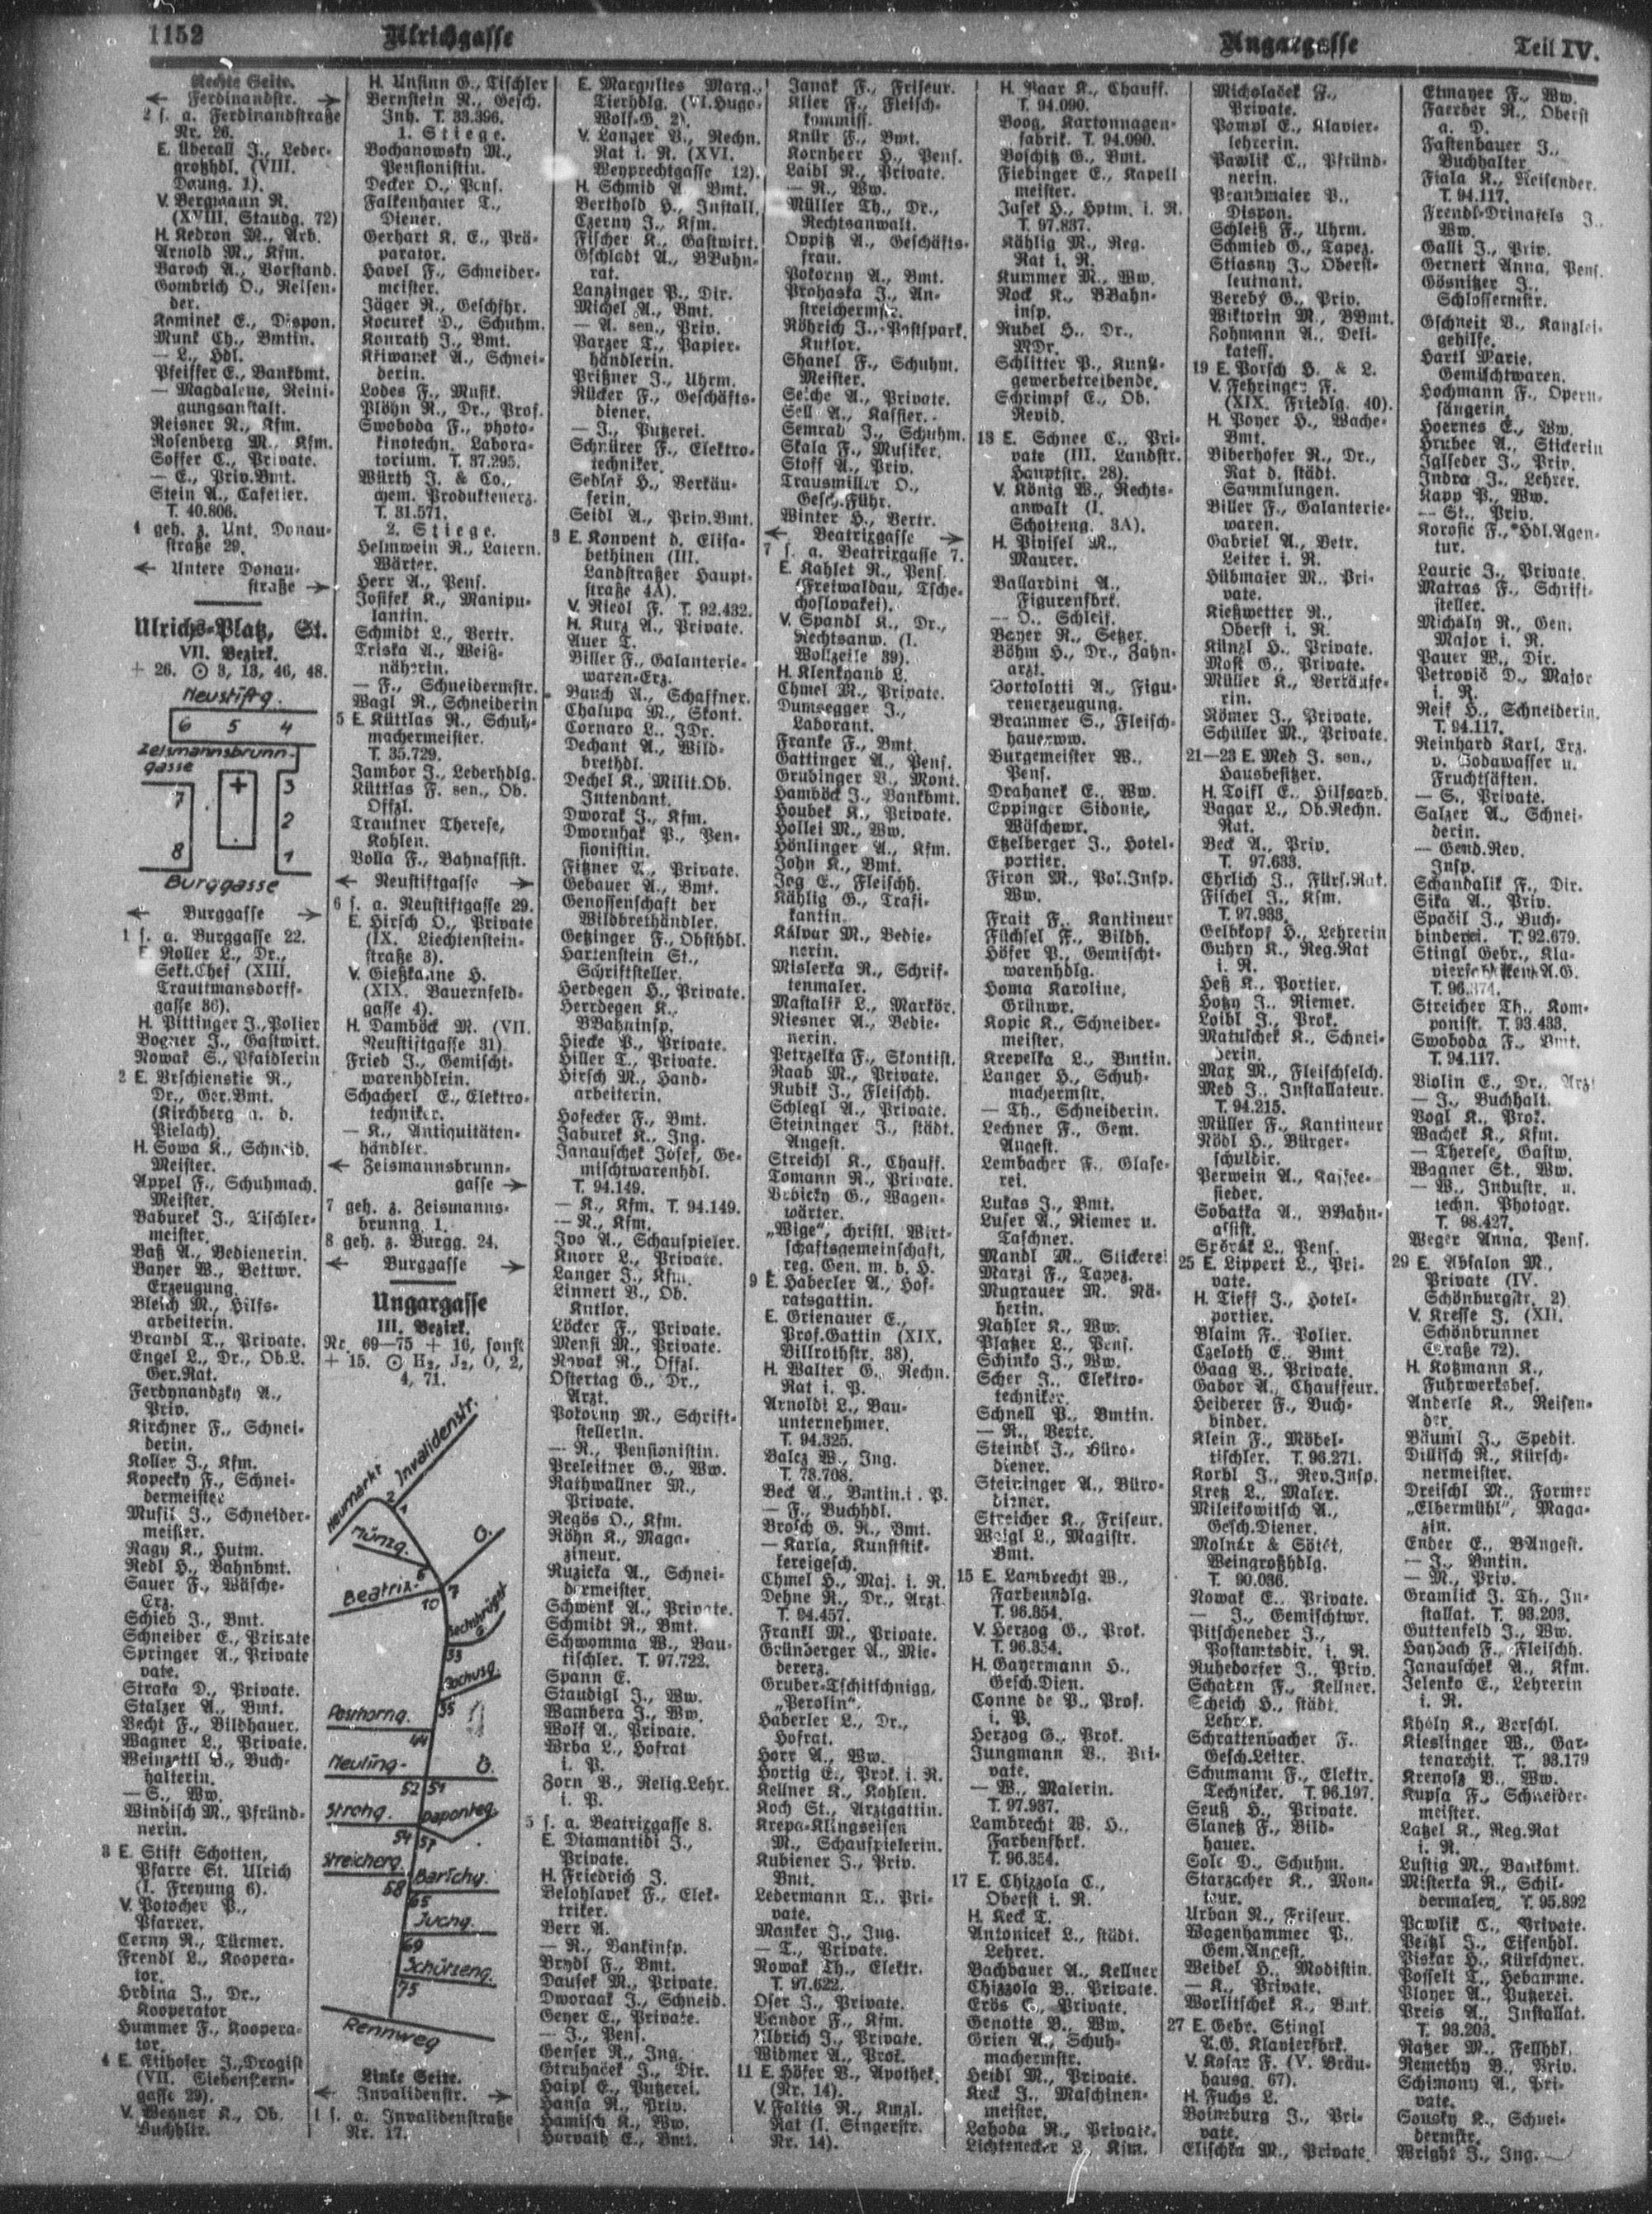 1152
Ulrichgasse
Ungargasse
Teil IV.
Rechte Seite.
← Ferdinandstr. →
2 s. a. Ferdinandstraße
Nr. 26.
E. Überall J., Leder-
großhdl. (VIII.
Daung. 1).
V. Bergmann R.
(XVIII. Staudg. 72)
H. Kedron M., Arb.
Arnold M., Kfm.
Baroch A., Vorstand.
Gombrich O., Reisen-
der.
Kaminek E., Dispon.
Munk Ch., Bmtin.
— L., Hdl.
Pfeiffer E., Bankbmt.
— Magdalene, Reini-
gungsanstalt.
Reisner R., Kfm.
Rosenberg M., Kfm.
Soffer C., Private.
— E., Priv.Bmt.
Stein A., Cafetier.
T. 40.806.
4 geh. z. Unt. Donau-
straße 29.
← Untere Donau-
straße →
Ulrichs-Platz, St.
VII. Bezirk.
+ 26. ⊙ 3, 13, 46, 48.
Neustiftg.
6 5 4
Zeismannsbrunn-
gasse
+
7
3
2
8
1
Burggasse
← Burggasse →
1 s. a. Burggasse 22.
E. Roller L., Dr.,
Sekt.Chef (XIII.
Trauttmansdorff-
gasse 36).
H. Pittinger J., Polier
Bogner J., Gastwirt.
Nowak S., Pfaidlerin
2 E. Vrschienskie R.,
Dr., Ger.Bmt.
(Kirchberg a. d.
Pielach).
H. Sowa K., Schneid.
Meister.
Appel F., Schuhmach.
Meister.
Baburek J., Tischler-
meister.
Baß A., Bedienerin.
Bayer W., Bettwr.
Erzeugung.
Bleich M., Hilfs-
arbeiterin.
Brandl T., Private.
Engel L., Dr., Ob.L.
Ger.Rat.
Ferdynandzky A.,
Priv.
Kirchner F., Schnei-
derin.
Koller J., Kfm.
Kopecky F., Schnei-
dermeister
Musil J., Schneider-
meister.
Nagy K., Hutm.
Redl H., Bahnbmt.
Sauer F., Wäsche-
Erz.
Schieb J., Bmt.
Schneider E., Private
Springer A., Private
vate.
Straka D., Private.
Stalzer A., Bmt.
Vecht F., Bildhauer.
Wagner L., Private.
Weinzettl B., Buch-
halterin.
— S., Ww.
Windisch M., Pfründ-
nerin.
3 E. Stift Schotten,
Pfarre St. Ulrich
(I. Freyung 6).
V. Potocher P.,
Pfarrer.
Cerny R., Türmer.
Frendl L., Koopera-
tor.
Hrdina J., Dr.,
Kooperator
Hummer F., Koopera-
tor.
4 E. Eithofer J., Drogist
(VII. Siebenstern-
gasse 29).
V. Weyner K., Ob.
Buchhltr.
H. Unsinn G., Tischler
Bernstein R., Gesch.
Inh. T. 33.396.
1. Stiege.
Bochanowsky M.,
Pensionistin.
Decker O., Pens.
Falkenhauer T.,
Diener.
Gerhart K. E., Prä-
parator.
Havel F., Schneider-
meister.
Jäger R., Geschfhr.
Kocurek D., Schuhm.
Konrath J., Bmt.
Kliwanek A., Schnei-
derin.
Lodes F., Musik.
Plöhn R., Dr., Prof.
Swoboda F., photo-
kinotechn. Labora-
torium. T. 37.295.
Würth J. & Co.,
chem. Produktenerz.
T. 31.571.
2. Stiege.
Helmwein R., Latern.
Wärter.
Herr A., Pens.
Josifek K., Manipu-
lantin.
Schmidt L., Vertr.
Triska A., Weiß-
näherin.
— F., Schneidermstr.
Wagl R., Schneiderin
5 E. Küttlas R., Schuh-
machermeister.
T. 35.729.
Jambor J., Lederhdlg.
Küttlas F. sen., Ob.
Offzl.
Trautner Therese,
Kohlen.
Volla F., Bahnassist.
← Neustiftgasse →
6 s. a. Neustiftgasse 29.
E. Hirsch O., Private
(IX. Liechtenstein-
straße 3).
V. Gießkanne H.
(XIX. Bauernfeld-
gasse 4).
H. Damböck M. (VII.
Neustiftgasse 31)
Fried J., Gemischt-
warenhdlrin.
Schacherl E., Elektro-
techniker.
— K., Antiquitäten-
händler.
← Zeismannsbrunn-
gasse →
7 geh. z. Zeismanns-
brunng. 1.
8 geh. z. Burgg. 24.
← Burggasse →
Ungargasse
III. Bezirk.
Nr. 69—75 + 16, sonst
+ 15. ⊙ H₂, J₂, O, 2,
4, 71.
Invalidenstr.
Heumarkt
2
1
Münzg.
O.
Beatrix-
6
7
10
Sechskrügelg.
33
Rochusg.
35
Posthorng.
44
Neuling-
O.
52 51
Strohg.
Daponteg.
54 57
Streicherg.
Barichg.
58
65
Juchg.
69
Schützeng.
75
Rennweg
Linke Seite.
← Invalidenstr. →
1 s. a. Invalidenstraße
Nr. 17.
E. Margulies Marg.,
Tierhdlg. (VI. Hugo-
Wolf-G. 2).
V. Langer B., Rechn.
Rat i. R. (XVI.
Weyprechtgasse 12).
H. Schmid A. Bmt.
Berthold H., Install.
Czerny J., Kfm.
Fischer K., Gastwirt.
Gschladt A., BBahn-
rat.
Lanzinger P., Dir.
Michel A., Bmt.
— A. sen., Priv.
Parzer T., Papier-
händlerin.
Prißner J., Uhrm.
Rücker F., Geschäfts-
diener.
— J., Putzerei.
Schnürer F., Elektro-
techniker.
Sedlak H., Verkäu-
ferin.
Seidl A., Priv.Bmt.
3 E. Konvent d. Elisa-
bethinen (III.
Landstraßer Haupt-
straße 4A).
V. Riedl F. T. 92.432.
H. Kurz A., Private.
Auer T.
Biller F., Galanterie-
waren-Erz.
Bauch A., Schaffner.
Chalupa M., Skont.
Cornaro L., JDr.
Dechant A., Wild-
brethdl.
Dechel K., Milit.Ob.
Intendant.
Dworak J., Kfm.
Dwornhak P., Pen-
sionistin.
Fitzner T., Private.
Gebauer A., Bmt.
Genossenschaft der
Wildbrethändler.
Getzinger F., Obsthdl.
Hartenstein St.,
Schriftsteller.
Herdegen H., Private.
Herrdegen K.,
BBahninsp.
Hiecke P., Private.
Hiller T., Private.
Hirsch M., Hand-
arbeiterin.
Hofecker F., Bmt.
Jaburek K., Ing.
Janauschek Josef, Ge-
mischtwarenhdl.
T. 94.149.
— K., Kfm. T. 94.149.
— R., Kfm.
Ivo A., Schauspieler.
Knorr L., Private.
Langer J., Kfm.
Linnert B., Ob.
Kutlor.
Löcker F., Private.
Mensi M., Private.
Novak R., Offzl.
Ostertag G., Dr.,
Arzt.
Pokorny M., Schrift-
stellerin.
— R., Pensionistin.
Preleitner G., Ww.
Rathwallner M.,
Private.
Regös O., Kfm.
Röhn K., Maga-
zineur.
Ruzicka A., Schnei-
dermeister.
Schwenk A., Private.
Schmidt R., Bmt.
Schwomma W., Bau-
tischler. T. 97.722.
Spann E.
Staudigl J., Ww.
Wambera J., Ww.
Wolf A., Private.
Wrba L., Hofrat
i. P.
Zorn B., Relig.Lehr.
i. P.
5 s. a. Beatrixgasse 8.
E. Diamantidi J.,
Private.
H. Friedrich J.
Belohlavek F., Elek-
triker.
Berr A.
— R., Bankinsp.
Brydl F., Bmt.
Dausek M., Private.
Dworaak J., Schneid.
Geyer E., Private.
— J., Pens.
Genser R., Ing.
Gtruhacek J., Dir.
Haipl E., Putzerei.
Hansa R., Priv.
Hamisch K., Ww.
Horvath E., Bmt.
Janak F., Friseur.
Klier F., Fleisch-
kommiss.
Knür F., Bmt.
Kornherr H., Pens.
Laidl R., Private.
— R., Ww.
Müller Th., Dr.,
Rechtsanwalt.
Oppitz A., Geschäfts-
frau.
Pokorny A., Bmt.
Prohaska J., An-
streichermstr.
Röhrich J., Postspark.
Kutlor.
Shanel F., Schuhm.
Meister.
Seiche A., Private.
Sell A., Kassier.
Semrad J., Schuhm.
Skala F., Musiker.
Stoff A., Priv.
Trausmiller O.,
Gesch.Führ.
Winter H., Vertr.
← Beatrixgasse →
7 s. a. Beatrixgasse 7.
E. Kahlet R., Pens.
(Freiwaldau, Tsche-
choslovakei).
V. Spandl K., Dr.,
Rechtsanw. (I.
Wollzeile 39).
H. Klenkhand L.
Chmel M., Private.
Dumsegger J.,
Laborant.
Franke F., Bmt.
Gattinger A., Pens.
Grubinger V., Mont.
Hamböck J., Bankbmt.
Houbek K., Private.
Hollei M., Ww.
Hönlinger A., Kfm.
John K., Bmt.
Jog E., Fleischh.
Kählig G., Trafi-
kantin.
Kalvar M., Bedie-
nerin.
Mislerka R., Schrif-
tenmaler.
Mastalik L., Markör.
Niesner A., Bedie-
nerin.
Petrzelka F., Skontist.
Raab M., Private.
Rubik J., Fleischh.
Schlegl A., Private.
Steininger J., städt.
Angest.
Streichl K., Chauff.
Tomann R., Private.
Urbicky G., Wagen-
wärter.
„Wige“, christl. Wirt-
schaftsgemeinschaft,
reg. Gen. m. b. H.
9 E. Haberler A., Hof-
ratsgattin.
E. Grienauer E.,
Prof.Gattin (XIX.
Billrothstr. 38).
H. Walter G., Rechn.
Rat i. P.
Arnoldi L., Bau-
unternehmer.
T. 94.325.
Balcz W., Ing.
T. 73.708.
Beck A., Bmtin. i. P.
— F., Buchhdl.
Brosch G. R., Bmt.
— Karla, Kunststik-
kereigesch.
Chmel H., Maj. i. R.
Dehne R., Dr., Arzt
T. 94.457.
Frankl M., Private.
Gründberger A., Mie-
dererz.
Gruber-Tschitschnigg,
„Perolin“.
Haberler L., Dr.,
Hofrat.
Horr A., Ww.
Hortig E., Prok. i. R.
Kellner K., Kohlen.
Koch St., Arztgattin.
Krepa-Klingseisen
M., Schauspielerin.
Kubiener J., Priv.
Bmt.
Ledermann T., Pri-
vate.
Manker J., Ing.
— T., Private.
Nowak Th., Elektr.
T. 97.622.
Oser J., Private.
Vandor F., Kfm.
Ulbrich J., Private.
Widmer A., Prok.
11 E. Höfer B., Apothek.
(Nr. 14).
V. Faltis R., Kmzl.
Rat (I. Singerstr.
Nr. 14).
H. Paar K., Chauff.
T. 94.090.
Boog, Kartonnagen-
fabrik. T. 94.090.
Boschitz G., Bmt.
Fiebinger E., Kapell
meister.
Jasek H., Hptm. i. R.
T. 97.837.
Kählig M., Reg.
Rat i. R.
Kummer M., Ww.
Rock K., BBahn-
insp.
Rubel H., Dr.,
MDr.
Schlitter P., Kunst-
gewerbetreibende.
Schrimpf E., Ob.
Revid.
13 E. Schnee C., Pri-
vate (III. Landstr.
Hauptstr. 28).
V. König W., Rechts-
anwalt (I.
Schotteng. 3A).
H. Pivisel M.,
Maurer.
Ballardini A.,
Figurenfbrk.
— O., Schleif.
Bayer R., Setzer.
Böhm H., Dr., Zahn-
arzt.
Bortolotti A., Figu-
renerzeugung.
Brammer S., Fleisch-
hauerww.
Burgemeister W.,
Pens.
Drahanek E., Ww.
Eppinger Sidonie,
Wäschewr.
Etzelberger J., Hotel-
portier.
Firon M., Pol.Insp.
Ww.
Frait F., Kantineur
Füchsel F., Bildh.
Höfer P., Gemischt-
warenhdlg.
Homa Karoline,
Grünwr.
Kopic K., Schneider-
meister.
Krepelka L., Bmtin.
Langer H., Schuh-
machermstr.
— Th., Schneiderin.
Lechner F., Gem.
Angest.
Lembacher F., Glase-
rei.
Lukas J., Bmt.
Luser A., Riemer u.
Taschner.
Mandl M., Stickerei
Marzi F., Tapez.
Mugrauer M., Nä-
herin.
Nahler K., Ww.
Platzer L., Pens.
Schinko J., Ww.
Scher J., Elektro-
techniker.
Schnell P., Bmtin.
— R., Vertr.
Steindl J., Büro-
diener.
Steininger A., Büro-
diener.
Streicher K., Friseur.
Weigl L., Magistr.
Bmt.
15 E. Lambrecht W.,
Farbenhdlg.
T. 96.354.
V. Herzog G., Prok.
T. 96.354.
H. Gayermann H.,
Gesch.Dien.
Conne de P., Prof.
i. P.
Herzog G., Prok.
Jungmann B., Pri-
vate.
— W., Malerin.
T. 97.937.
Lambrecht W. H.,
Farbenfbrk.
T. 96.354.
17 E. Chizzola C.,
Oberst i. R.
H. Keck T.
Antonicek L., städt.
Lehrer.
Bachbauer A., Kellner
Chizzola B., Private.
Erös C., Private.
Genotte B., Ww.
Grien A., Schuh-
machermstr.
Heidl M., Private.
Keck J., Maschinen-
meister.
Lahoda R., Private.
Lichtenecker L., Kfm.
Micholacek F.,
Private.
Pompl E., Klavier-
lehrerin.
Pawlik C., Pfründ-
nerin.
Prandmaier P.,
Dispon.
Schleiß F., Uhrm.
Schmied G., Tapez.
Stiasny J., Oberst-
leutnant.
Vereby G., Priv.
Wiktorin M., BBmt.
Zohmann A., Deli-
katess.
19 E. Porsch H. & L.
V. Fehringer F.
(XIX. Friedlg. 40).
H. Poyer H., Wache-
Bmt.
Biberhofer R., Dr.,
Rat d. städt.
Sammlungen.
Biller F., Galanterie-
waren.
Gabriel A., Betr.
Leiter i. R.
Hübmaier M., Pri-
vate.
Kießwetter R.,
Oberst i. R.
Künzl H., Private.
Most G., Private.
Müller K., Verkäufe-
rin.
Römer J., Private.
Schüller M., Private.
21—23 E. Med J. sen.,
Hausbesitzer.
H. Toifl E., Hilfsarb.
Bagar L., Ob.Rechn.
Rat.
Beck A., Priv.
T. 97.633.
Ehrlich J., Fürs.Rat.
Fischel J., Kfm.
T. 97.933.
Gelbkopf H., Lehrerin
Guhry K., Reg.Rat
i. R.
Heß K., Portier.
Hotzy J., Riemer.
Loibl J., Prok.
Matuschek K., Schnei-
derin.
May M., Fleischselch.
Med J., Installateur.
T. 94.215.
Müller F., Kantineur
Rödl H., Bürger-
schuldir.
Perwein A., Kaffee-
sieder.
Sobatka A., BBahn-
assist.
Sporak L., Pens.
25 E. Lippert L., Pri-
vate.
H. Tieff J., Hotel-
portier.
Blaim F., Polier.
Czeloth E., Bmt.
Gaag V., Private.
Gabor A., Chauffeur.
Heiderer F., Buch-
binder.
Klein F., Möbel-
tischler. T. 96.271.
Korbl J., Rev.Insp.
Kretz L., Maler.
Mileikowitsch A.,
Gesch.Diener.
Molnár & Sötét,
Weingroßhdlg.
T. 90.036.
Nowak E., Private.
— J., Gemischtwr.
Pitscheneder J.,
Postamtsdir. i. R.
Ruhedorfer J., Priv.
Schaden F., Kellner.
Scheich H., städt.
Lehrer.
Schrattenbacher F.
Gesch.Leiter.
Schumann F., Elektr.
Techniker. T. 96.197.
Seuß H., Private.
Slanetz F., Bild-
hauer.
Sole D., Schuhm.
Starzacher K., Mon-
teur.
Urban R., Friseur.
Wagenhammer P.,
Gem.Angest.
Weidel H., Modistin.
— K., Private.
Worlitschek K., Bmt.
27 E. Gebr. Stingl
A.G. Klavierfbrk.
V. Kosar F. (V. Bräu-
hausg. 67).
H. Fuchs L.
Boineburg J., Pri-
vate.
Elischka M., Private
Etmayer F., Ww.
Faerber R., Oberst
a. D.
Fastenbauer J.,
Buchhalter
Fiala K., Reisender.
T. 94.117.
Frendl-Drinafels J.,
Ww.
Galli J., Priv.
Gernert Anna, Pens.
Gösnitzer J.,
Schlossermstr.
Gschneit V., Kanzlei-
gehilfe.
Hartl Marie,
Gemischtwaren.
Hochmann F., Opern-
sängerin.
Hoernes E., Ww.
Hruber A., Stickerin
Jglseder J., Priv.
Indra J., Lehrer.
Kapp P., Ww.
— St., Priv.
Korosic F., Hdl.Agen-
tur.
Lauric J., Private.
Matras F., Schrift-
steller.
Michaly R., Gen.
Major i. R.
Pauer W., Dir.
Petrovic D., Major
i. R.
Reif H., Schneiderin.
T. 94.117.
Reinhard Karl, Erz.
v. Sodawasser u.
Fruchtsäften.
— S., Private.
Salzer A., Schnei-
derin.
— Gend.Rev.
Insp.
Schandalik F., Dir.
Sika A., Priv.
Spacil J., Buch-
binderei. T. 92.679.
Stingl Gebr., Kla-
vierfabriken A.G.
T. 96.374.
Streicher Th., Kom-
ponist. T. 93.433.
Swoboda F., Bmt.
T. 94.117.
Violin E., Dr., Arzt
— J., Buchhalt.
Vogl K., Prok.
Wachek K., Kfm.
— Therese, Gastw.
Wagner St., Ww.
— W., Industr. u.
techn. Photogr.
T. 98.427.
Weger Anna, Pens.
29 E. Absalon M.,
Private (IV.
Schönburgstr. 2)
V. Kresse J. (XII.
Schönbrunner
Straße 72).
H. Kotzmann K.,
Fuhrwerksbes.
Anderle K., Reisen-
der.
Bäuml J., Spedit.
Dillisch R., Kürsch-
nermeister.
Dreischl M., Former
„Elbermühl“, Maga-
zin.
Ender E., BAngest.
— J., Bmtin.
— M., Priv.
Gramlick J. Th., In-
stallat. T. 93.203.
Guttenfeld J., Ww.
Haydach F., Fleischh.
Janauschek A., Kfm.
Jelenko E., Lehrerin
i. R.
Khóly K., Verschl.
Kieslinger W., Gar-
tenarchit. T. 93.179
Krenosz V., Ww.
Kupsa F., Schneider-
meister.
Latzel K., Reg.Rat
i. R.
Lustig M., Bankbmt.
Misterka R., Schil-
dermaler. T. 95.892
Pawlik C., Private.
Peitzl J., Eisenhdl.
Piskar H., Kürschner.
Posselt T., Hebamme.
Ployer A., Putzerei.
Preis A., Installat.
T. 93.203.
Ratzer M., Fellhdl.
Remethy B., Priv.
Schimony A., Pri-
vate.
Sousky K., Schnei-
dermstr.
Wright J., Ing.